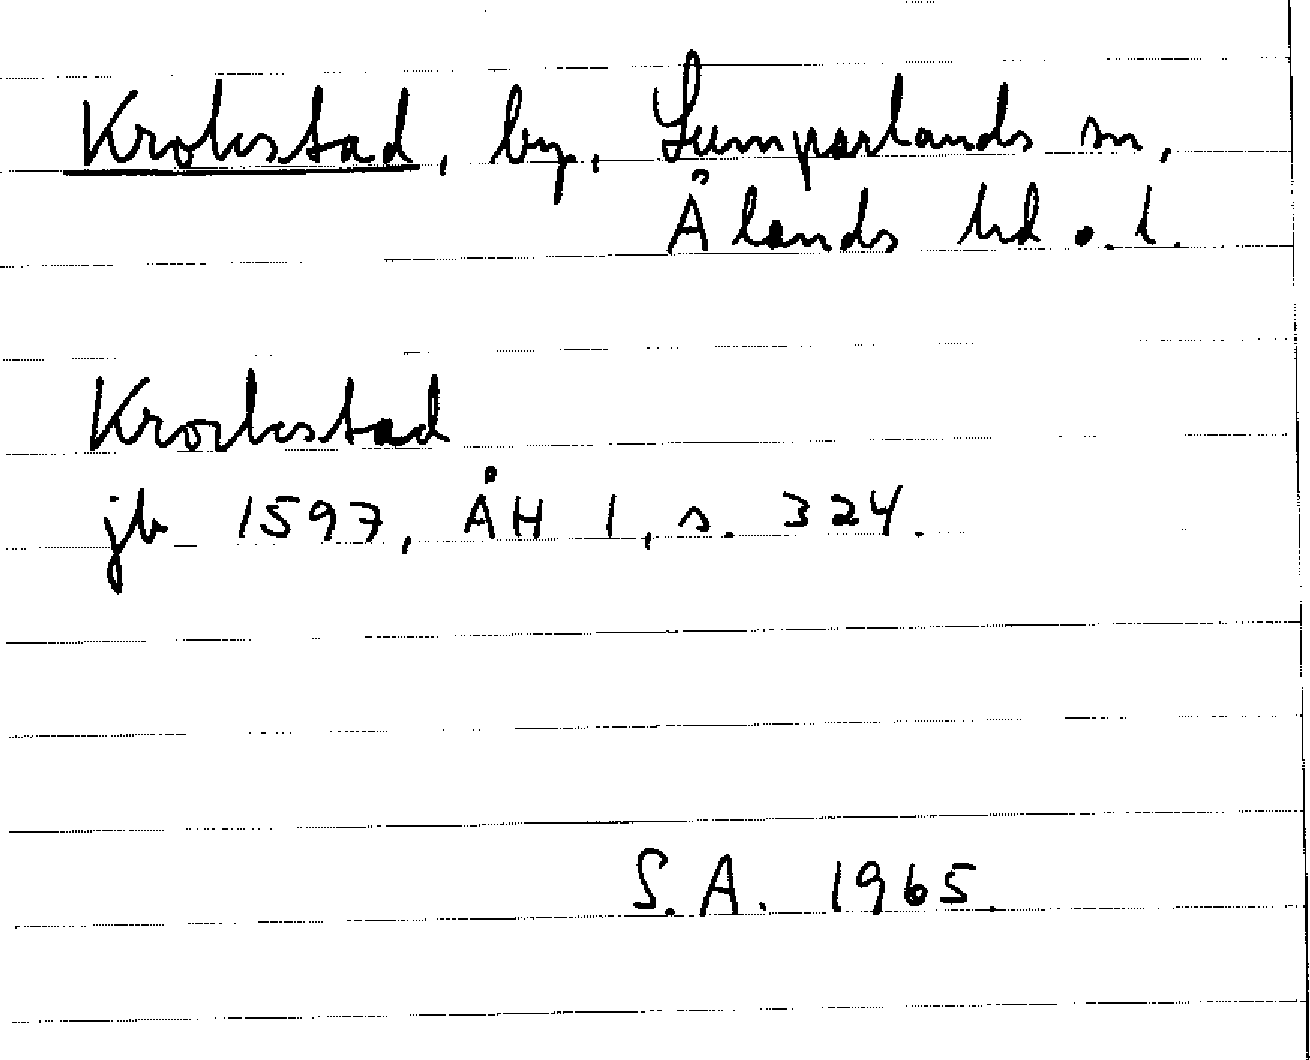 Krokstad, by, Lumparlands sn,
Ålands hd o. l.
Krockstad
jb 1597, ÅH 1, s. 324.
S.A. 1965.